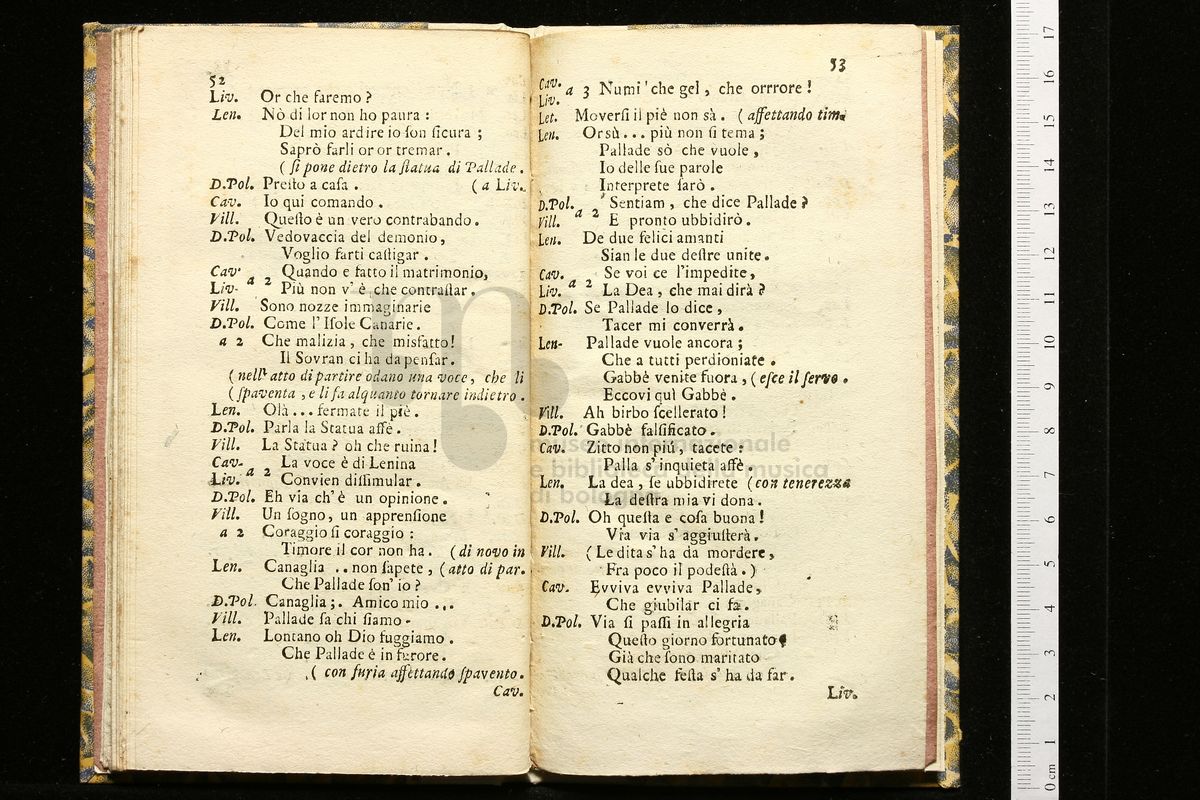 52
Liv. Or che faremo ?
Len. Nò di lor non ho paura :
Del mio ardire io ſon ſicura ;
Saprò farli or or tremar .
( ſi pone dietro la ſtatua di Pallade .
D.Pol. Preſto a caſa . ( a Liv.
Cav. Io qui comando .
Vill. Queſto è un vero contrabando .
D.Pol. Vedovaccia del demonio ,
Voglio farti caſtigar .
Cav. a 2 Quando e fatto il matrimonio,
Liv- Più non v' è che contraſtar .
Vill. Sono nozze immaginarie
D.Pol. Come l' Iſole Canarie .
a 2 Che malizia , che misfatto !
Il Sovran ci ha da penſar .
( nell' atto di partire odano una voce , che li
( ſpaventa , e li fa alquanto tornare indietro .
Len. Olà ... fermate il piè .
D.Pol. Parla la Statua affè .
Vill. La Statua ? oh che ruina !
Cav- a 2 La voce è di Lenina
Liv. Convien diſſimular .
D.Pol. Eh via ch' è un opinione .
Vill. Un ſogno , un apprenſione
a 2 Coraggio ſi coraggio :
Timore il cor non ha . ( di novo in
Len. Canaglia .. non ſapete , ( atto di par.
Che Pallade ſon' io ?
D.Pol. Canaglia ;. Amico mio ...
Vill. Pallade ſa chi ſiamo -
Len. Lontano oh Dio fuggiamo .
Che Pallade è in furore .
( con furia affettando ſpavento .
Cav.
53
Cav. Liv. a 3 Numi ' che gel , che orrrore !
Let. Moverſi il piè non sà . ( affettando tim.
Len. Orsù ... più non ſi tema ;
Pallade sò che vuole ,
Io delle ſue parole
Interprete ſarò .
D.Pol. a 2 Sentiam , che dice Pallade ?
Vill. E pronto ubbidirò .
Len. De due felici amanti
Sian le due deſtre unite .
Cav. a 2 Se voi ce l'impedite ,
Liv. La Dea , che mai dirà ?
D.Pol. Se Pallade lo dice ,
Tacer mi converrà .
Len- Pallade vuole ancora ;
Che a tutti perdioniate .
Gabbè venite fuora , ( eſce il ſervo .
Eccovi quì Gabbè .
Vill. Ah birbo ſcellerato !
D.Pol. Gabbè falſificato .
Cav. Zitto non più , tacete :
Palla s' inquieta affè .
Len. La dea , ſe ubbidirete ( con tenerezza
La deſtra mia vi dona .
D.Pol. Oh queſta e coſa buona !
Via via s' aggiuſterà .
Vill. ( Le dita s' ha da mordere ,
Fra poco il podeſtà . )
Cav. Evviva evviva Pallade ,
Che giubilar ci fa .
D.Pol. Via ſi paſſi in allegria
Queſto giorno fortunato
Già che ſono maritato
Qualche feſta s' ha da far .
Liv.
museo internazionale
e biblioteca della musica
di bologna
0 cm 1 2 3 4 5 6 7 8 9 10 11 12 13 14 15 16 17